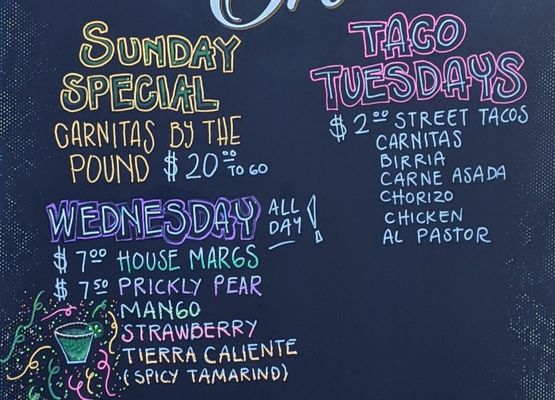 SUNDAY
SPECIAL
CARNITAS BY THE
POUND $20.00 TO GO
WEDNESDAY ALL DAY!
$7.00 HOUSE MARGS
$7.50 PRICKLY PEAR
MANGO
STRAWBERRY
TIERRA CALIENTE
(SPICY TAMARIND)
TACO
TUESDAYS
$2.00 STREET TACOS
CARNITAS
BIRRIA
CARNE ASADA
CHORIZO
CHICKEN
AL PASTOR